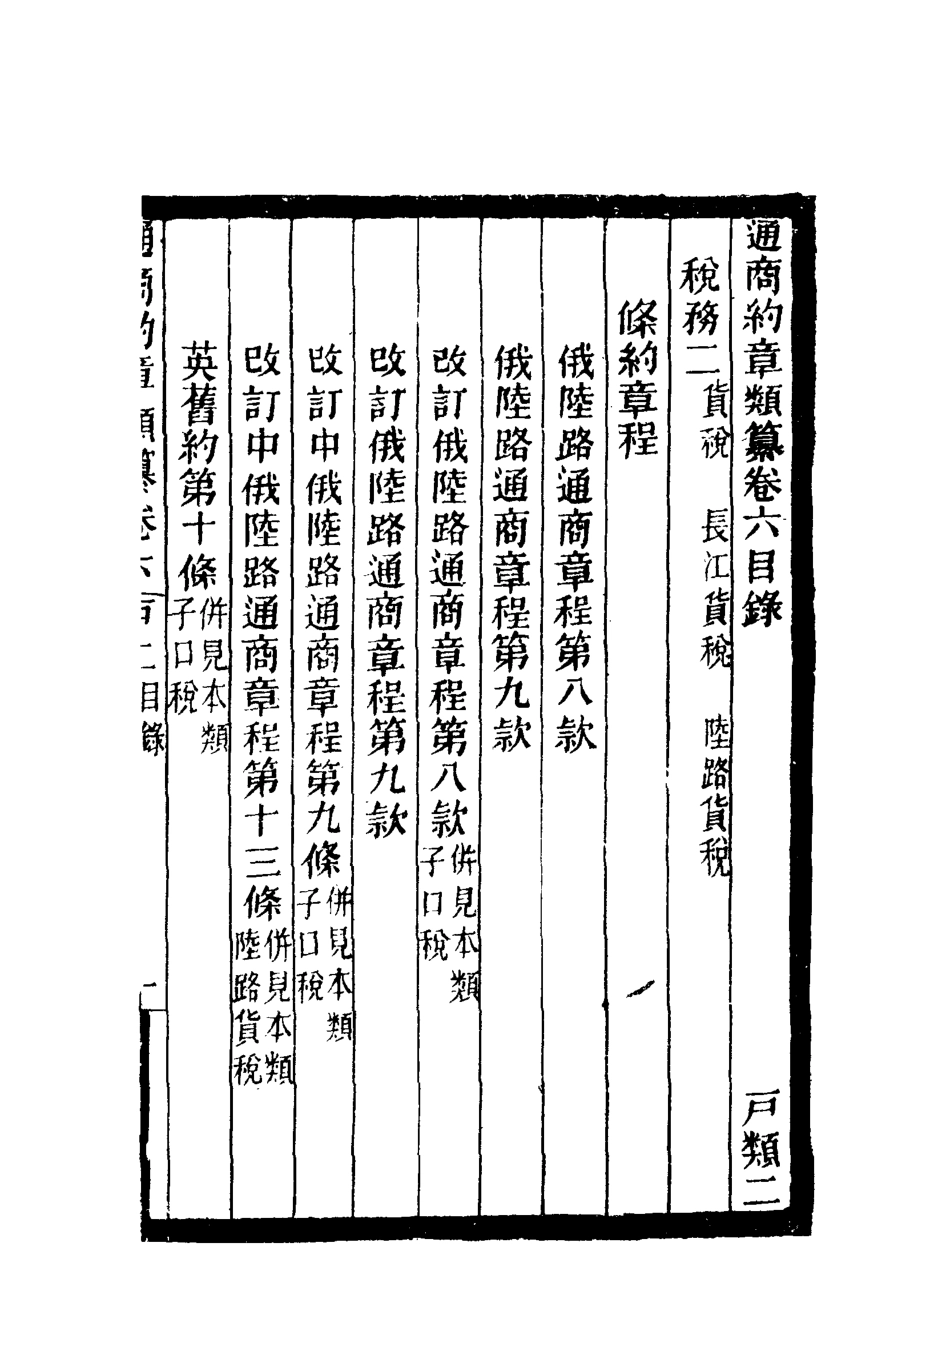 通商約章類纂卷六目錄　戶類二
稅務二　貨稅　長江貨稅　陸路貨稅
條約章程
俄陸路通商章程第八款
俄陸路通商章程第九款
改訂俄陸路通商章程第八款　併見本類子口稅
改訂俄陸路通商章程第九款
改訂中俄陸路通商章程第九條　併見本類子口稅
改訂中俄陸路通商章程第十三條　併見本類陸路貨稅
英舊約第十條　併見本類子口稅
通商約章類纂卷六　戶二目錄　一